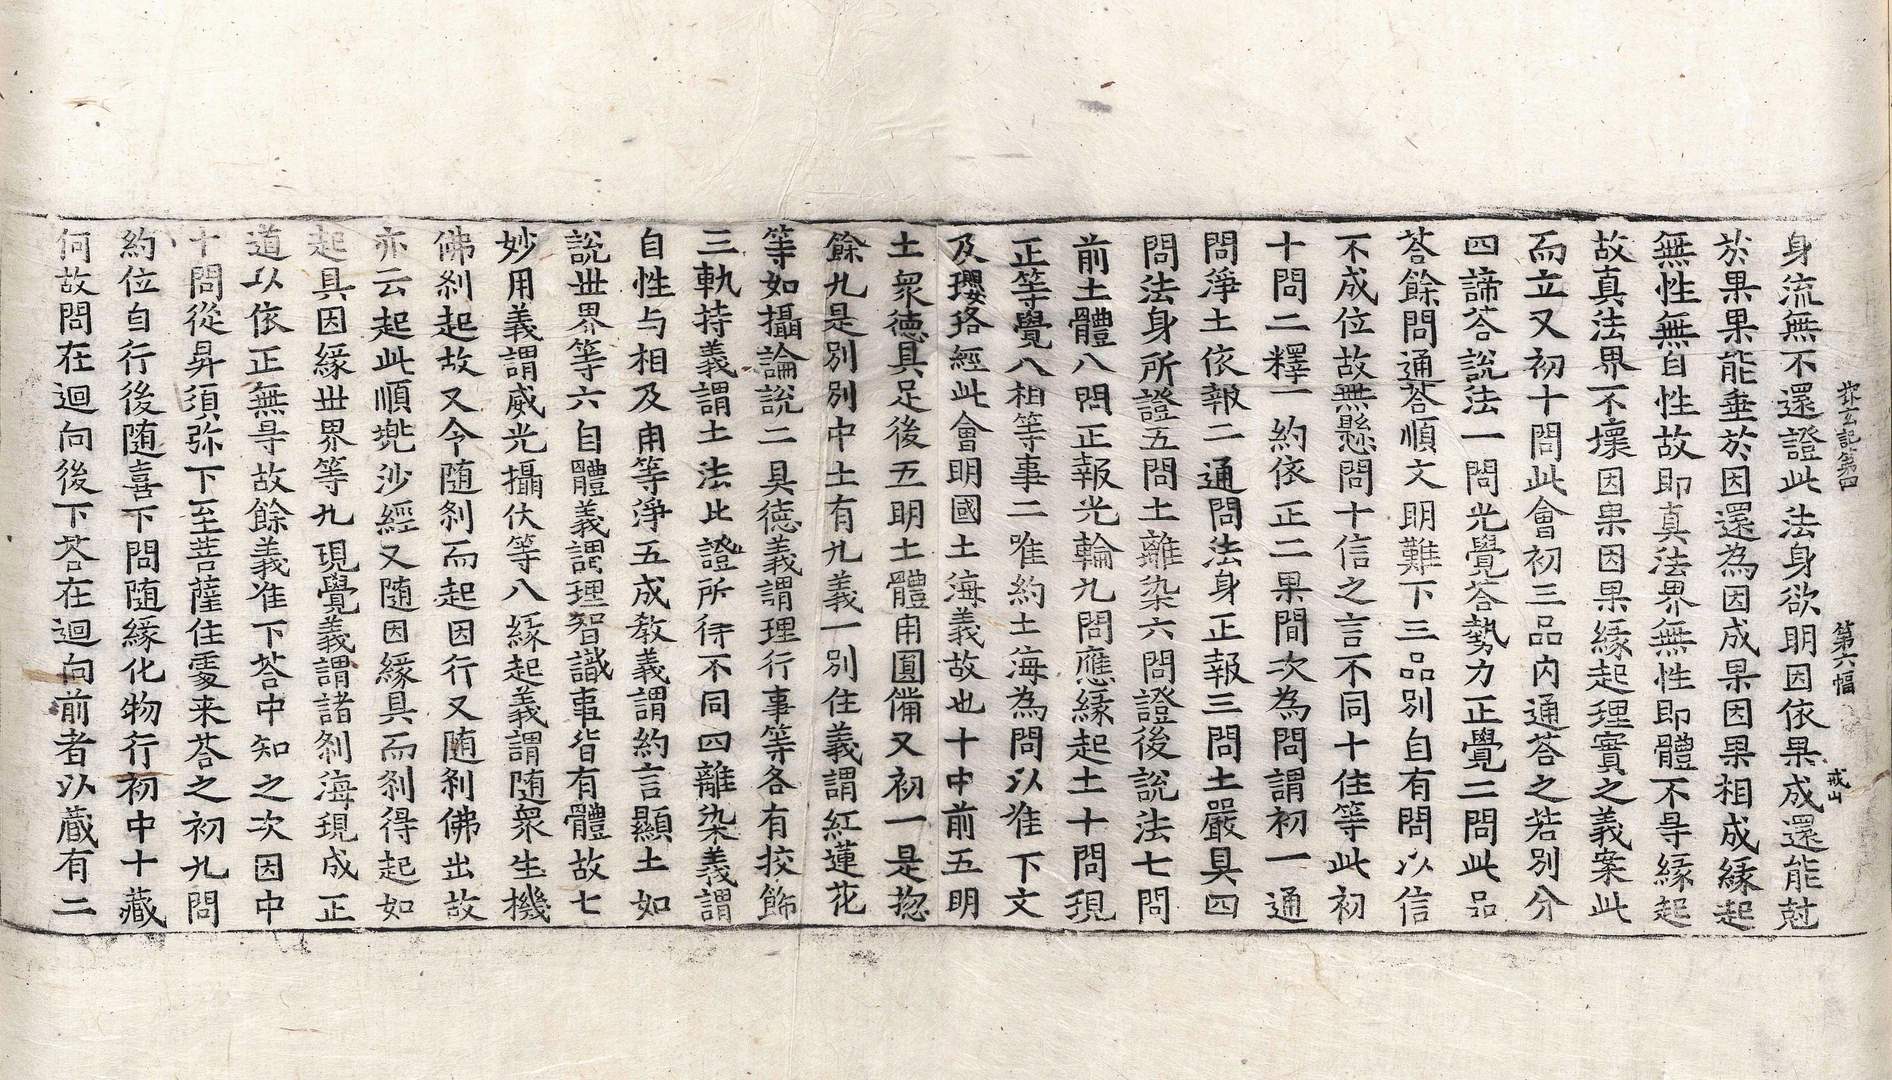 探玄記第四 第六幅 戒山
身流無不還證此法身欲明因依果成還能尅
扵果果能垂於因還為因成果因果相成縁起
無性無自性故即真法界無性即體不㝵縁起
故真法界不壞因果因果縁起理實之義案此
而立又初十問此會初三品内通荅之若別分
四諦荅説法一問光覺荅勢力正覺二問此品
荅餘問通荅順文明難下三品別自有問以信
不成位故無懸問十信之言不同十住等此初
十問二釋一約依正二果間次為問謂初一通
問淨土依報二通問法身正報三問土嚴具四
問法身所證五問土離染六問證後説法七問
前土體八問正報光輪九問應縁起土十問現
正等覺八相等事二唯約土海為問以准下文
及瓔珞經此㑹明國土海義故也十中前五明
土衆徳具足後五明土體用圓俻又初一是揔
餘九是別別中土有九義一別住義謂紅蓮花
等如攝論説二具徳義謂理行事等各有挍飾
三軌持義謂土法比證所得不同四離染義謂
自性与相及用等淨五成教義謂約言顯土如
説丗界等六自體義謂理智識事皆有體故七
妙用義謂威光攝伏等八縁起義謂随衆生機
佛刹起故又令随刹而起因行又随刹佛出故
亦云起此順兠沙經又随因縁具而刹得起如
起具因縁丗界等九現覺義謂諸刹海現成正
道以依正無㝵故餘義准下荅中知之次因中
十問從昇須弥下至菩薩住䖏来荅之初九問
約位自行後随喜下問随縁化物行初中十藏
何故問在迴向後下荅在迴向前者以藏有二